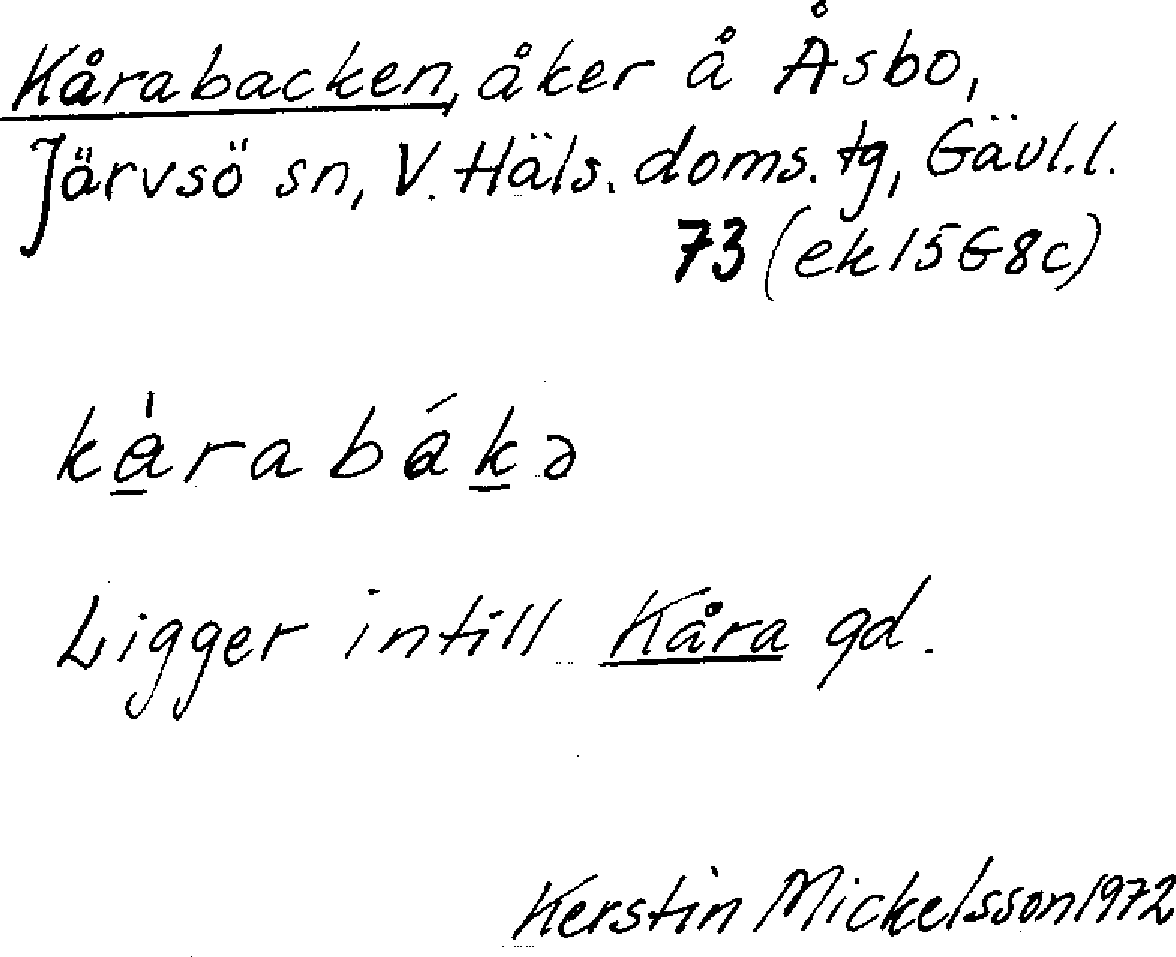 Kårabacken, åker å Åsbo,
Järvsö sn, V. Häls. doms. tg, Gävl. l.
73 (ek 15G8c)
kàrabákə
Ligger intill Kåra gd.
Kerstin Mickelsson 1972